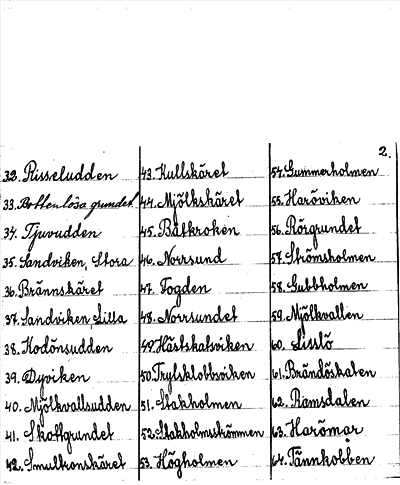 2.
32. Risseludden
33. Bottenlösa grundet
34. Tjuvudden
35. Sandviken, Stora
36. Brännskäret
37. Sandviken, Lilla
38. Kodönsudden
39. Dyviken
40. Mjölkvallsudden
41. Skottgrundet
42. Smultronskäret
43. Kullskäret
44. Mjölkskäret
45. Båtkroken
46. Norrsund
47. Fogden
48. Norrsundet
49. Hästskatsviken
50. Trytsklobbviken
51. Stakholmen
52. Stakholmsströmmen
53. Högholmen
54. Gummerholmen
55. Haröviken
56. Rörgrundet
57. Strömsholmen
58. Gubbholmen
59. Mjölkvallen
60. Lisslö
61. Brändöskalen
62. Ramsdalen
63. Harömar
64. Tännkobben